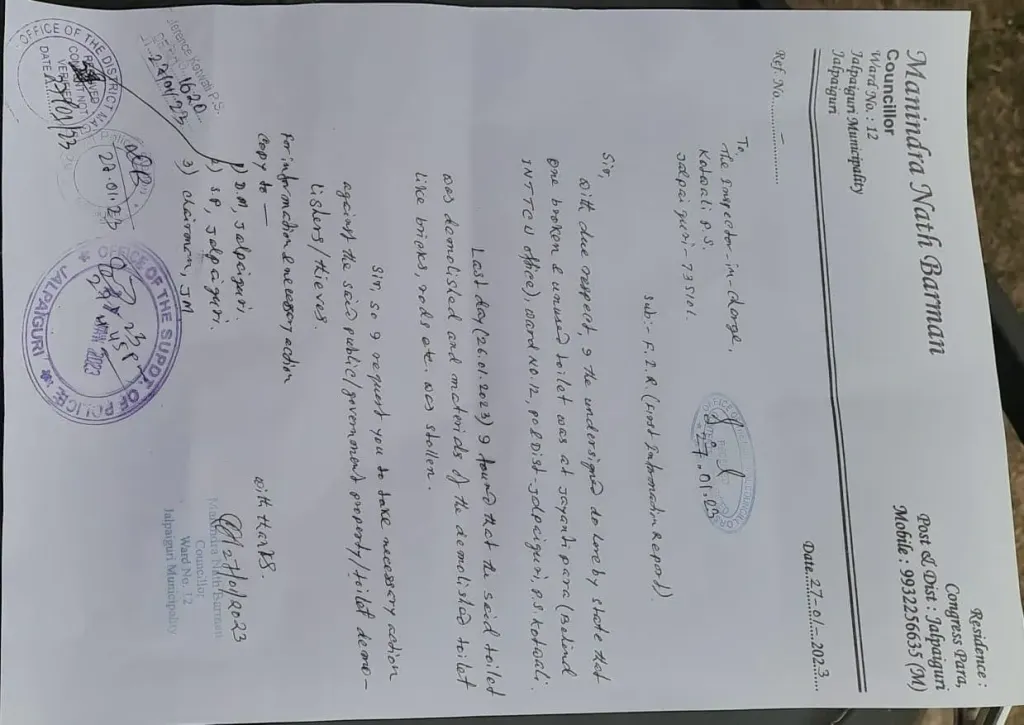 Manindra Nath Barman
Councillor
Ward No. : 12
Jalpaiguri Municipality
Jalpaiguri
Residence :
Congress Para,
Post & Dist : Jalpaiguri
Mobile : 9932256635 (M)
Ref. No. –
Date. 27-01-2023
To,
The Inspector-in-charge,
Kotwali P.S.
Jalpaiguri-735101.
27.01.23
Sub:- F.I.R (First Information Report).
Sir,
With due respect, I the undersigned do hereby state that
one broken & unused toilet was at Jayantipara (Behind
INTTCU office), ward No.12, po & Dist-Jalpaiguri, P.S. Kotwali.
Last day (26.01.2023) I found that the said toilet
was demolished and materials of the demolished toilet
like bricks, rods etc. was stollen.
Sir, so I request you to take necessary action
against the said public/government property/toilet demo-
lishers/thieves.
For information & necessary action
copy to —
1) D.M, Jalpaiguri.
2) S.P, Jalpaiguri.
3) Chairman, JM
With thanks.
27/01/2023
Manindra Nath Barman
Councillor
Ward No. 12
Jalpaiguri Municipality
Kotwali P.S.
1620
27/01/23
OFFICE OF THE DISTRICT MAG
RECEIVED
NOT
VERI
DATE 27/01/23
27.01.23
OFFICE OF THE SUPDT. OF POLICE
JALPAIGURI